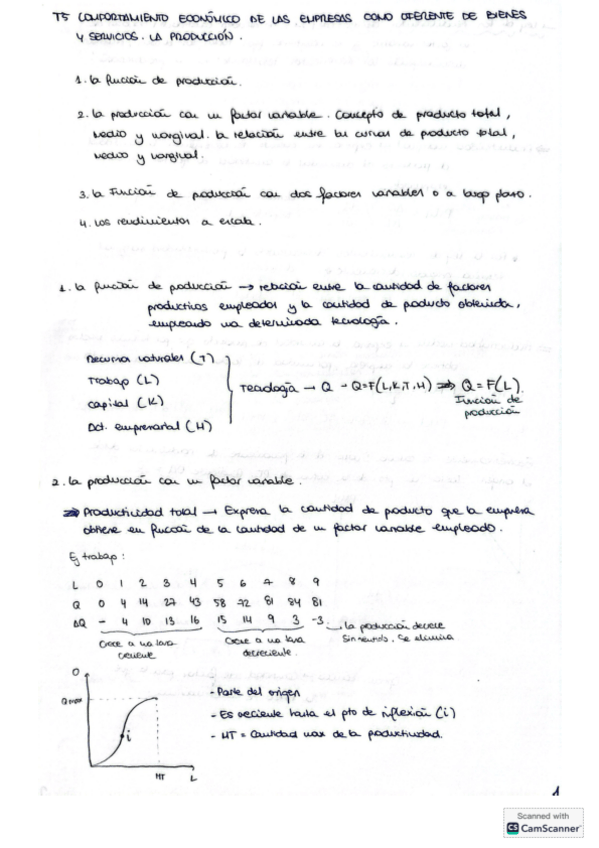 T5 COMPORTAMIENTO ECONÓMICO DE LAS EMPRESAS COMO OFERENTE DE BIENES
Y SERVICIOS. LA PRODUCCIÓN.
1. La función de producción.
2. La producción con un factor variable. Concepto de producto total,
medio y marginal. La relación entre las curvas de producto total,
medio y marginal.
3. La función de producción con dos factores variables o a largo plazo.
4. Los rendimientos a escala.
1. La función de producción → relación entre la cantidad de factores
productivos empleados y la cantidad de producto obtenida,
empleando una determinada tecnología.
Recursos naturales (T)
Trabajo (L)
Capital (K)
Act. empresarial (H)
Tecnología → Q - Q=F(L,K,T,H) ⇒ Q=F(L).
Función de
producción
2. La producción con un factor variable.
⇒ Productividad total → Expresa la cantidad de producto que la empresa
obtiene en función de la cantidad de un factor variable empleado.
Ej trabajo:
L 0 1 2 3 4 5 6 7 8 9
Q 0 4 14 27 43 58 72 81 84 81
ΔQ - 4 10 13 16 15 14 9 3 -3 → la producción decrece
Crece a una tasa creciente
Crece a una tasa decreciente.
Sin sentido, se elimina
Q
Q max
i
MT
L
- Parte del origen
- Es creciente hasta el pto de inflexión (i)
- MT = Cantidad max de la productividad.
1
Scanned with
CS CamScanner